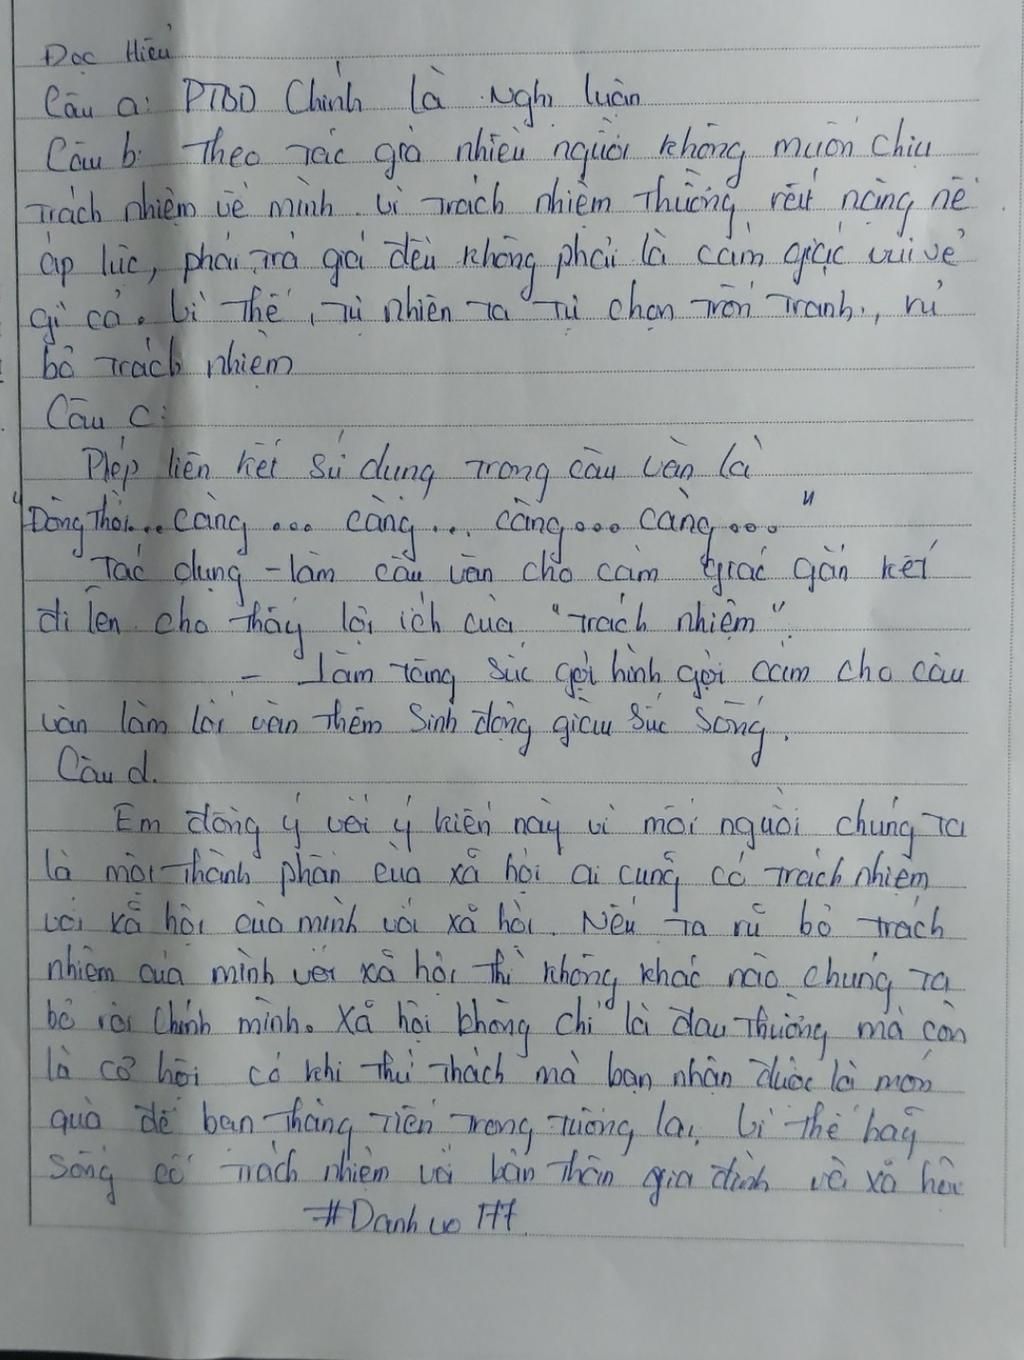 Đọc Hiểu
Câu a: PTBĐ Chính là Nghị luận
Câu b: Theo tác giả nhiều người không muốn chịu
trách nhiệm về mình. Vì trách nhiệm thường rất nặng nề
áp lực, phải trả giá đều không phải là cảm giác vui vẻ
gì cả. Vì thế, tự nhiên ta tự chọn trốn tránh, rủ
bỏ trách nhiệm
Câu c:
Phép liên kết sử dụng trong câu văn là
"Đồng thời... càng... càng... càng... càng..."
Tác dụng - làm câu văn cho cảm giác gắn kết
đi lên cho thấy lợi ích của "trách nhiệm".
- Làm tăng sức gợi hình gợi cảm cho câu
văn làm lời văn thêm sinh động giàu sức sống.
Câu d.
Em đồng ý với ý kiến này vì mỗi người chúng ta
là một thành phần của xã hội ai cũng có trách nhiệm
với xã hội của mình với xã hội. Nếu ta rũ bỏ trách
nhiệm của mình với xã hội thì không khác nào chúng ta
bỏ rơi chính mình. Xã hội không chỉ là đau thương mà còn
là cơ hội có khi thử thách mà bạn nhận được là món
quà để bạn thăng tiến trong tương lai. Vì thế hãy
sống có trách nhiệm với bản thân gia đình và xã hội